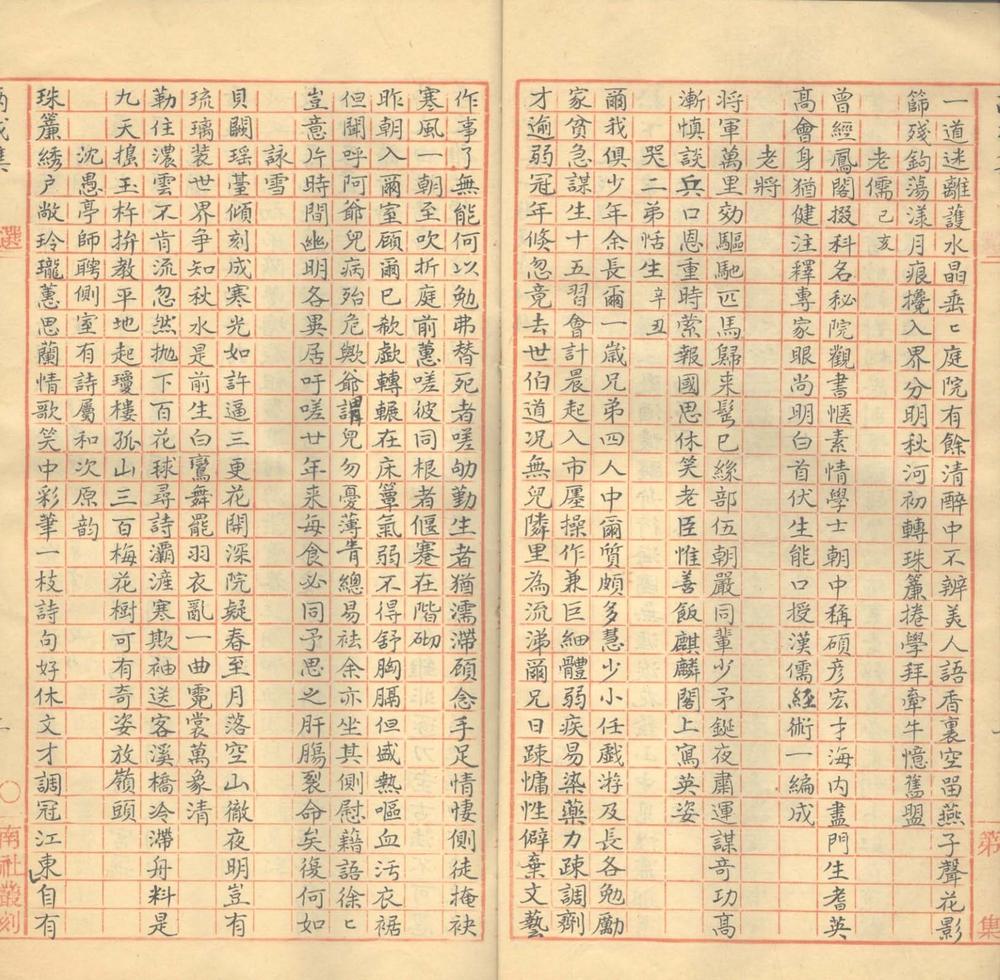 一道迷離護水晶垂〻庭院有餘清醉中不辨美人語香裏空留燕子聲花影
篩殘鉤蕩漾月痕攙入界分明秋河初轉珠簾捲學拜牽牛憶舊盟
老儒 己亥
曾經鳳閣掇科名秘院觀書愜素情學士朝中稱碩彥宏才海內盡門生耆英
高會身猶健注釋專家眼尚明白首伏生能口授漢儒經術一編成
老將
將軍萬里効驅馳匹馬歸來髩已絲部伍朝嚴同輩少矛鋋夜肅運謀奇功高
漸慎談兵口恩重時縈報國思休笑老臣惟善飯麒麟閣上寫英姿
哭二弟恬生 辛丑
爾我俱少年余長爾一歲兄弟四人中爾質頗多慧少小任戲游及長各勉勵
家貧急謀生十五習會計晨起入市廛操作兼巨細體弱疾易染藥力疎調劑
才逾弱冠年倏忽竟去世伯道况無兒隣里為流涕爾兄日疎慵性僻棄文藝
作事了無能何以勉弗替死者嗟劬勤生者猶濡滯顧念手足情悽側徒掩袂
寒風一朝至吹折庭前蕙嗟彼同根者偃蹇在階砌
昨朝入爾室顧爾已欷歔轉輾在床簟氣弱不得舒胸膈但盛熱嘔血汚衣裾
但聞呼阿爺兒病殆危歟爺謂兒勿憂薄眚總易祛余亦坐其側慰藉語徐〻
豈意片時間幽明各異居吁嗟廿年來每食必同予思之肝腸裂命矣後何如
詠雪
貝闕瑶臺傾刻成寒光如許逼三更花開深院疑春至月落空山徹夜明豈有
琉璃裝世界争知秋水是前生白鸞舞罷羽衣亂一曲霓裳萬象清
勒住濃雲不肯流忽然抛下百花球尋詩灞滻寒欺袖送客溪橋冷滯舟料是
九天搗玉杵拚教平地起瓊樓孤山三百梅花樹可有奇姿放嶺頭
沈愚亭師聘側室有詩屬和次原韵
珠簾綉户敞玲瓏蕙思蘭情歌笑中彩筆一枝詩句好休文才調冠江東自有
選
南社叢刻
第
集